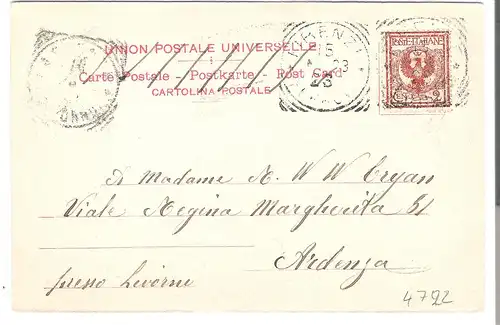 UNION POSTALE UNIVERSELLE
Carte Postale - Postkarte - Post Card
CARTOLINA POSTALE
POSTE ITALIANE
2
Madame
Viale Regina Margherita 51
Ardenza
presso Livorno
4792